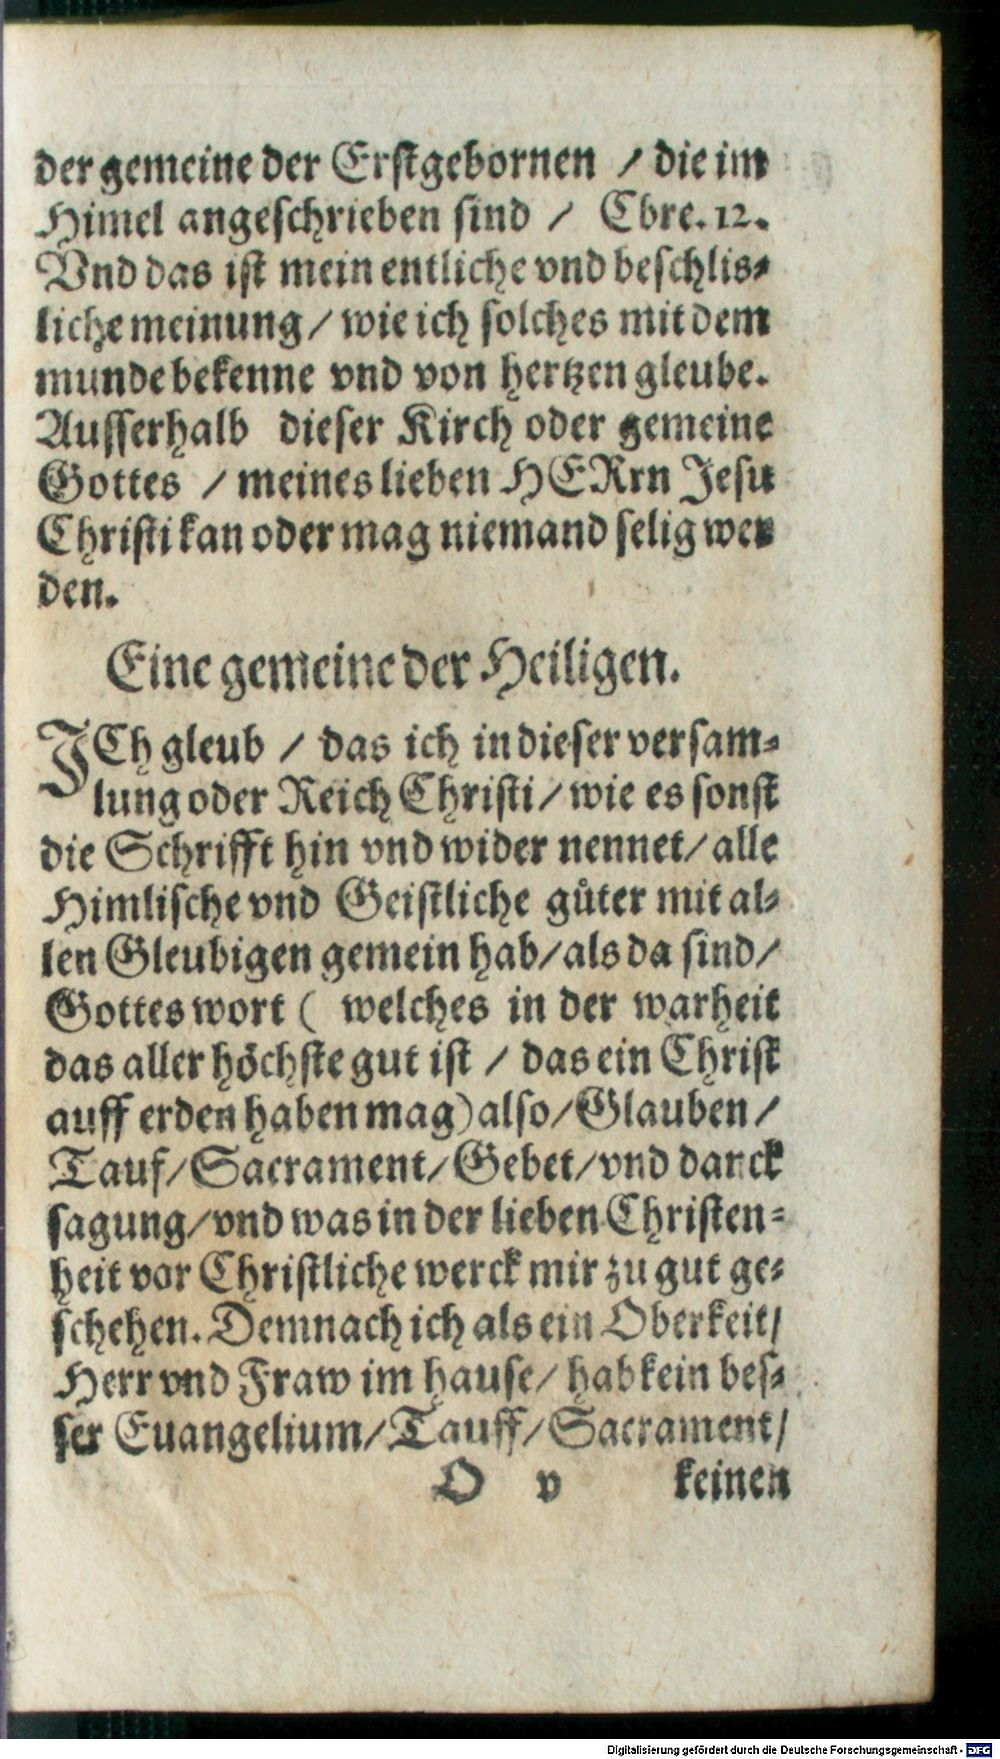 der gemeine der Erstgebornen / die im
Himel angeschrieben sind / Ebre. 12.
Vnd das ist mein entliche vnd beschlis-
liche meinung / wie ich solches mit dem
munde bekenne vnd von hertzen gleube.
Ausserhalb dieser Kirch oder gemeine
Gottes / meines lieben HERrn Jesu
Christi kan oder mag niemand selig wer
den.
Eine gemeine der Heiligen.
JCh gleub / das ich in dieser versam-
lung oder Reich Christi / wie es sonst
die Schrifft hin vnd wider nennet / alle
Himlische vnd Geistliche gůter mit al-
len Gleubigen gemein hab / als da sind /
Gottes wort ( welches in der warheit
das aller höchste gut ist / das ein Christ
auff erden haben mag) also / Glauben /
Tauf / Sacrament / Gebet / vnd danck
sagung / vnd was in der lieben Christen-
heit vor Christliche werck mir zu gut ge-
schehen. Demnach ich als ein Oberkeit /
Herr vnd Fraw im hause / hab kein bes-
ser Euangelium / Tauff / Sacrament /
O v keinen
Digitalisierung gefördert durch die Deutsche Forschungsgemeinschaft - DFG